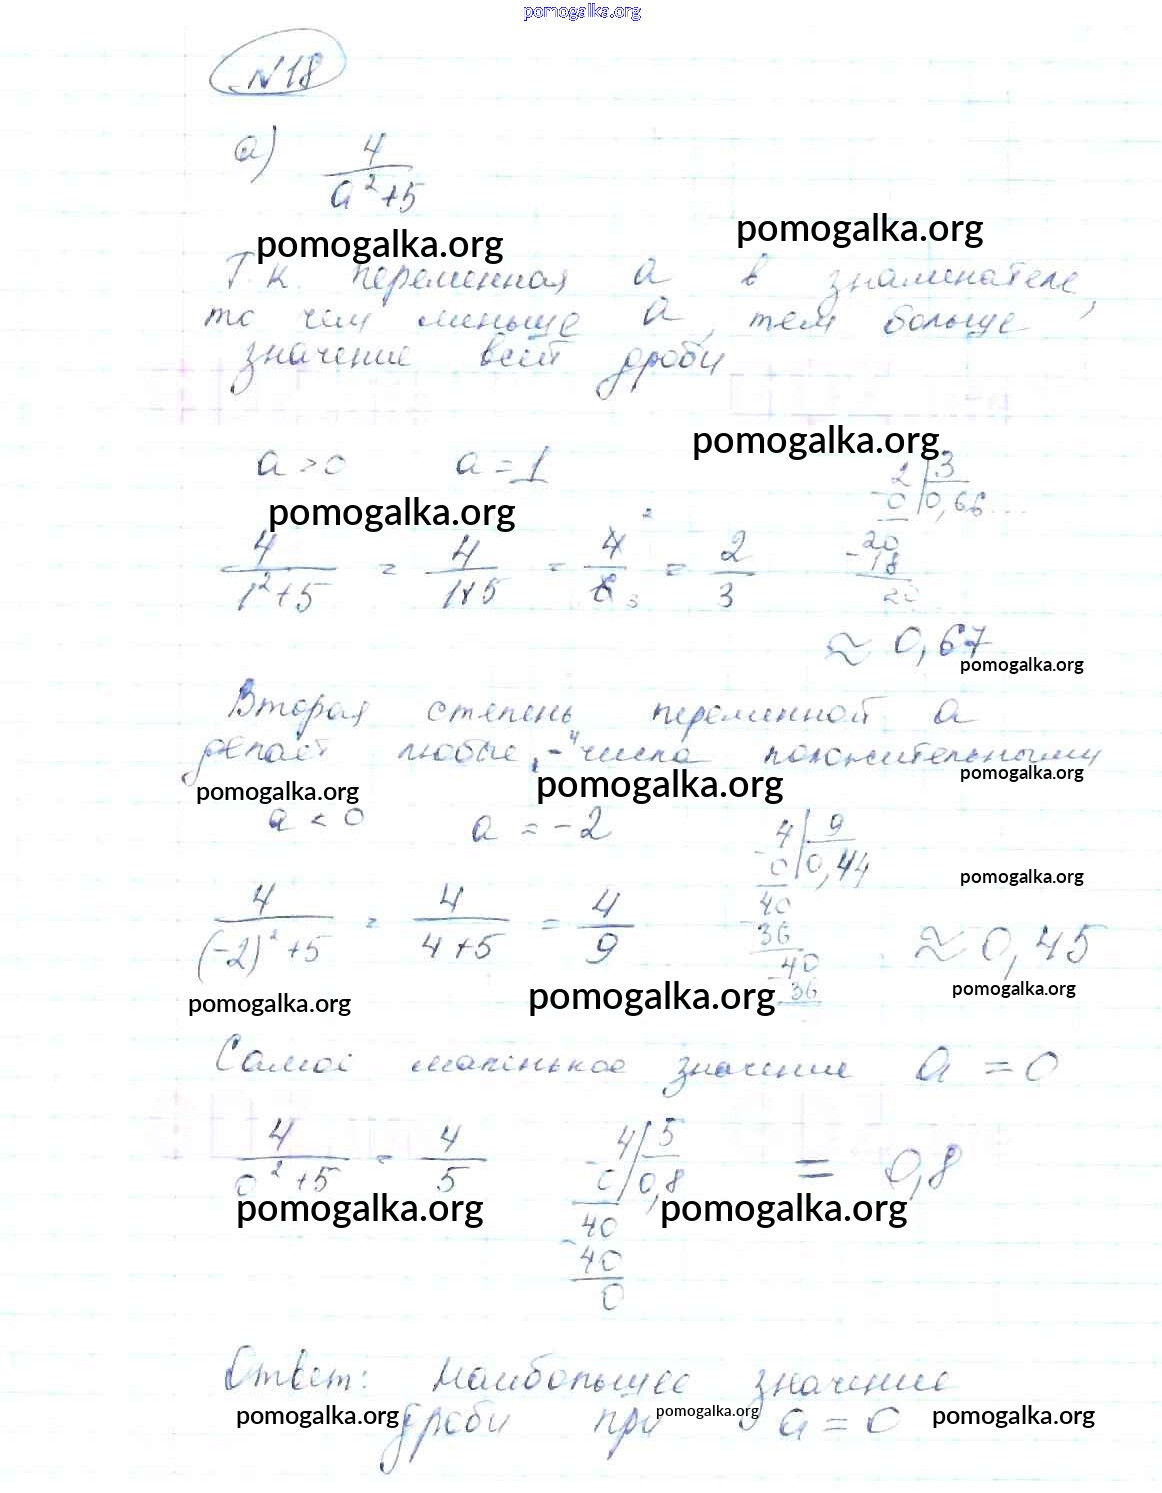 pomogalka.org
N18
а) 4
a²+5
pomogalka.org pomogalka.org
Т.к. переменная а в знаминателе,
то чем меньше а, тем больше
значение всей дроби
pomogalka.org
a > 0 a = 1
2 | 3
0 | 0,66...
20
-18
20
pomogalka.org
4/(1²+5) = 4/(1+5) = 4/6 = 2/3
≈ 0,67
pomogalka.org
Вторая степень переменной а
делает любые "-" числа положительными
pomogalka.org pomogalka.org pomogalka.org
a < 0 a = -2
4 | 9
0 | 0,44
40
36
40
36
pomogalka.org
4/((-2)²+5) = 4/(4+5) = 4/9 ≈ 0,45
pomogalka.org pomogalka.org pomogalka.org
Самое маленькое значение a = 0
4/(0²+5) = 4/5
4 | 5
0 | 0,8
40
-40
0
= 0,8
pomogalka.org pomogalka.org
Ответ: Наибольшее значение
дроби при a = 0
pomogalka.org pomogalka.org pomogalka.org